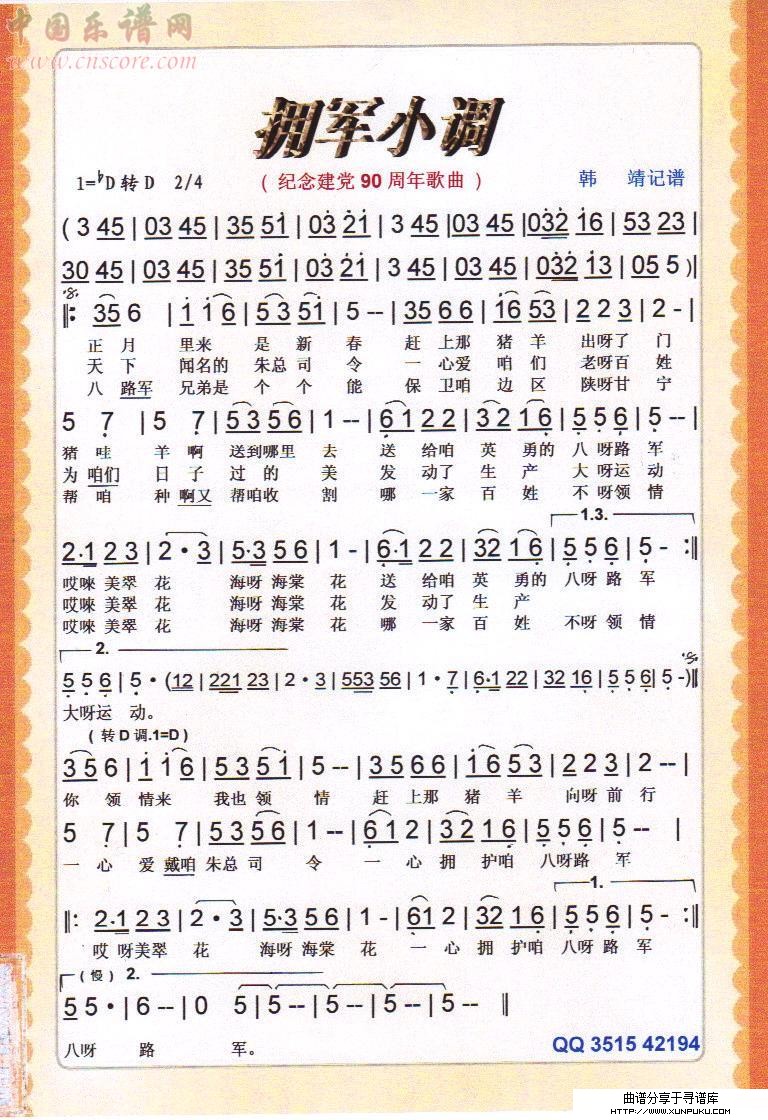 中国乐谱网
www.cnscore.com
拥军小调
1=♭D 转 D 2/4
( 纪念建党 90 周年歌曲 )
韩 靖记谱
( 3 45 | 03 45 | 35 51 | 03 21 | 3 45 |03 45 | 35 51 | 032 16 | 53 23 |
30 45 | 03 45 | 35 51 | 03 21 | 3 45 |03 45 | 35 51 | 032 13 | 05 5 )|
𝄆 35 6 | 1 1 6 | 5 3 51 | 5 -- | 35 66 | 16 53 | 2 2 3 | 2 - |
正 月 里来 是 新 春 赶 上那 猪 羊 出呀了 门
天 下 闻名的 朱总 司 令 一 心爱 咱 们 老呀百 姓
八 路军 兄弟是 个 个 能 保 卫咱 边 区 陕呀甘 宁
5 7 | 5 7 | 53 56 | 1 -- | 61 22 | 32 16 | 5 5 6 | 5 -- |
猪 哇 羊 啊 送到哪里 去 送 给咱 英 勇的 八 呀路 军
为 咱们 日 子 过 的 美 发 动了 生 产 大 呀运 动
帮 咱 种 啊又 帮咱收 割 哪 一家 百 姓 不 呀领 情
1.3.
2·1 2 3 | 2 · 3 | 5·3 5 6 | 1 - | 6·1 22 | 32 1 6 | 5 5 6 | 5 - 𝄇
哎唻 美翠 花 海呀 海棠 花 送 给咱 英 勇的 八呀 路 军
哎唻 美翠 花 海呀 海棠 花 发 动了 生 产
哎唻 美翠 花 海呀 海棠 花 哪 一家 百 姓 不呀 领 情
2.
5 5 6 | 5 · (12 | 221 23 | 2 · 3 | 553 56 | 1 - | 6·1 22 | 32 16 | 5 5 6 | 5 -)‖
大呀运 动。
( 转 D 调.1=D )
3 5 6 | 1 1 6 | 5 3 5 1 | 5 -- | 3 5 6 6 | 1 6 5 3 | 2 2 3 | 2 -- |
你 领 情来 我也 领 情 赶 上那 猪 羊 向呀 前 行
5 7 | 5 7 | 53 56 | 1 -- | 61 2 | 32 16 | 5 5 6 | 5 -- |
一 心 爱 戴咱 朱总 司 令 一 心拥 护咱 八呀路 军
1.
𝄆 2·1 2 3 | 2 · 3 | 5·3 5 6 | 1 - | 61 2 | 32 1 6 | 5 5 6 | 5 - 𝄇
哎 呀美翠 花 海呀 海棠 花 一 心 拥 护咱 八呀 路 军
(慢) 2.
5 5 · | 6 -- | 0 5 | 5 -- | 5 -- | 5 -- | 5 -- ‖
八呀 路 军。
QQ 3515 42194
曲谱分享于寻谱库
WWW.XUNPUKU.COM